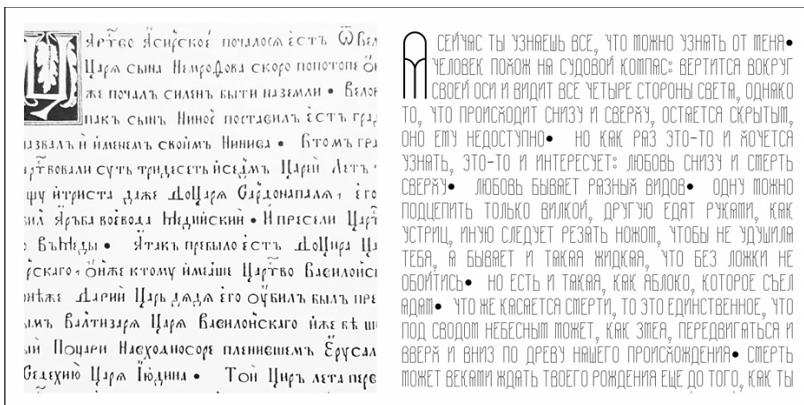 Царт҃во Асирское почалося єстъ Ѿ Вел
Царѧ сына Немродова скоро попотопе
же почалъ силенъ быти наземли • Велок
пакъ сынъ Нинос поставилъ єстъ град
назвалъ й йменемъ своймъ Нинива • Втомъ гра
арт҃вовали суть тридесеть йседмъ Царей Летъ
йтриста даже доЦарѧ Сардонапалѧ, его
Яръба воевода Медийский • Ипресели Царт҃
Въмеды • Ятакъ пребыло єстъ доЦира Ца
рскаго, онже ктому имеаше Царт҃во Василонск
нѣже Дарий Царь дядѧ его оубилъ былъ пре
ымъ Валтизарѧ Царѧ Василонскаго йже бѣ
ый Поцари Насходносоре пленившемъ Єрусал
Седехию Царѧ Июдина • Той Циръ лета перв
А СЕЙЧАС ТЫ УЗНАЕШЬ ВСЕ, ЧТО МОЖНО УЗНАТЬ ОТ МЕНЯ•
ЧЕЛОВЕК ПОХОЖ НА СУДОВОЙ КОМПАС: ВЕРТИТСЯ ВОКРУГ
СВОЕЙ ОСИ И ВИДИТ ВСЕ ЧЕТЫРЕ СТОРОНЫ СВЕТА, ОДНАКО
ТО, ЧТО ПРОИСХОДИТ СНИЗУ И СВЕРХУ, ОСТАЕТСЯ СКРЫТЫМ,
ОНО ЕМУ НЕДОСТУПНО• НО КАК РАЗ ЭТО-ТО И ХОЧЕТСЯ
УЗНАТЬ, ЭТО-ТО И ИНТЕРЕСУЕТ: ЛЮБОВЬ СНИЗУ И СМЕРТЬ
СВЕРХУ• ЛЮБОВЬ БЫВАЕТ РАЗНЫХ ВИДОВ• ОДНУ МОЖНО
ПОДЦЕПИТЬ ТОЛЬКО ВИЛКОЙ, ДРУГУЮ ЕДЯТ РУКАМИ, КАК
УСТРИЦ, ИНУЮ СЛЕДУЕТ РЕЗАТЬ НОЖОМ, ЧТОБЫ НЕ УДУШИЛА
ТЕБЯ, А БЫВАЕТ И ТАКАЯ ЖИДКАЯ, ЧТО БЕЗ ЛОЖКИ НЕ
ОБОЙТИСЬ• НО ЕСТЬ И ТАКАЯ, КАК ЯБЛОКО, КОТОРОЕ СЪЕЛ
АДАМ• ЧТО ЖЕ КАСАЕТСЯ СМЕРТИ, ТО ЭТО ЕДИНСТВЕННОЕ, ЧТО
ПОД СВОДОМ НЕБЕСНЫМ МОЖЕТ, КАК ЗМЕЯ, ПЕРЕДВИГАТЬСЯ И
ВВЕРХ И ВНИЗ ПО ДРЕВУ НАШЕГО ПРОИСХОЖДЕНИЯ• СМЕРТЬ
МОЖЕТ ВЕКАМИ ЖДАТЬ ТВОЕГО РОЖДЕНИЯ ЕЩЕ ДО ТОГО, КАК ТЫ